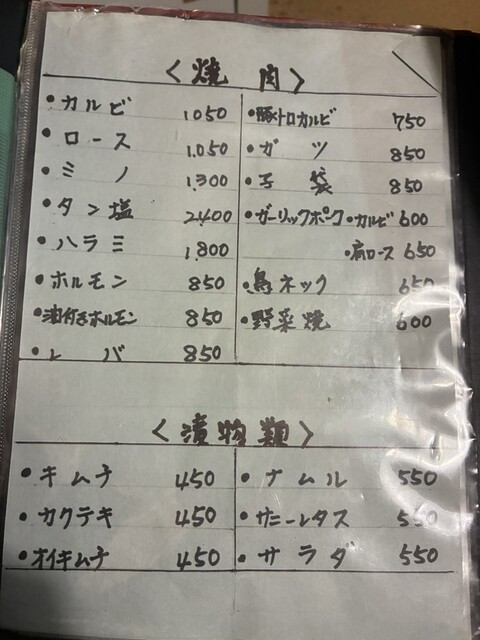 ＜焼肉＞
・カルビ 1,050
・ロース 1,050
・ミノ 1,300
・タン塩 2,400
・ハラミ 1,800
・ホルモン 850
・油付きホルモン 850
・レバ 850
・豚トロカルビ 750
・ガツ 850
・子袋 850
・ガーリックポーク・カルビ 600
・肩ロース 650
・鳥ネック 650
・野菜焼 600
＜漬物類＞
・キムチ 450
・カクテキ 450
・オイキムチ 450
・ナムル 550
・サニーレタス 550
・サラダ 550